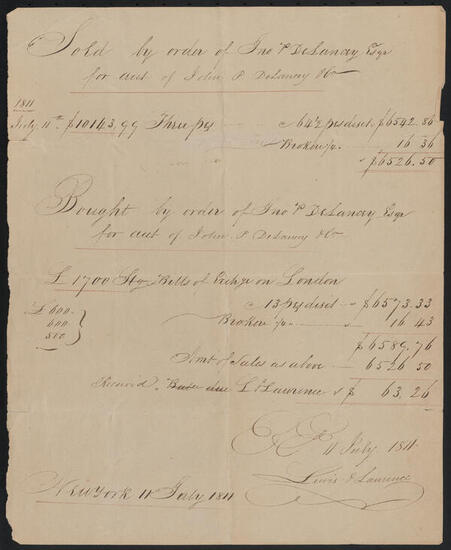 Sold by order of Jno P DeLancey Esqr
for acct of John P. DeLancey &Co
1811
July 11th $10143.99 Three pCt @ 64½ pCt disct $6542.86
Brokerage 16 36
$6526.50
Bought by order of Jno P DeLancey Esqr
for acct of John P. DeLancey &Co
£1700 Stg Bills of Exchge on London
@ 13 pCt disct $6573.33
£600. Brokerage 16 43
600
500
$6589.76
Amt of Sales as above 6526 50
Received L & Lawrence $ 63.26
11 July 1811
Lewis & Lawrence
New York 11 July 1811